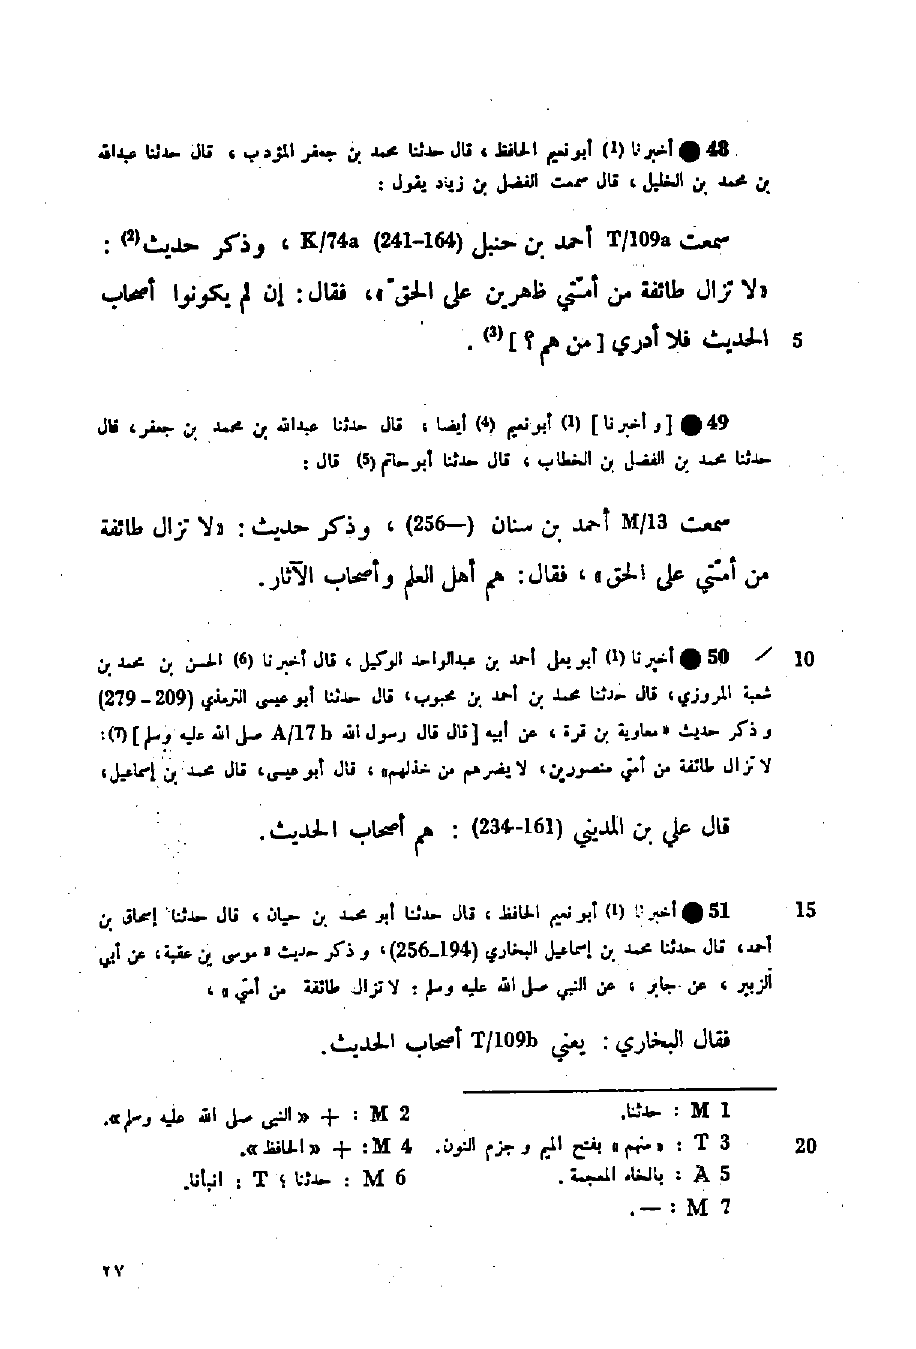 48 ● أخبرنا (1) أبو نعيم الحافظ ، قال حدثنا محمد بن جعفر المؤدب ، قال حدثنا عبدالله
بن محمد بن الخليل ، قال سمعت الفضل بن زياد يقول :
سمعت T/109a أحمد بن حنبل (164–241) K/74a ، وذكر حديث(2) :
«لا تزال طائفة من أمّتي ظهرين على الحق»، فقال: إن لم يكونوا أصحاب
الحديث فلا أدري [ من هم ؟ ] (3) . 5
49 ● [ و أخبرنا ] (1) أبو نعيم (4) أيضا ، قال حدثنا عبدالله بن محمد بن جعفر، قال
حدثنا محمد بن الفضل بن الخطاب ، قال حدثنا أبو حاتم (5) قال :
سمعت M/13 أحمد بن سنان (—256) ، وذكر حديث : «لا تزال طائفة
من أمّتي على الحق» ، فقال: هم أهل العلم وأصحاب الآثار.
50 ● أخبرنا (1) أبو يعلى أحمد بن عبدالواحد الوكيل ، قال أخبرنا (6) الحسن بن محمد بن / 10
شعبة المروزي، قال حدثنا محمد بن أحمد بن محبوب، قال حدثنا أبو عيسى الترمذي (209 – 279)
و ذكر حديث «معاوية بن قرة ، عن أبيه [قال قال رسول الله A/17b صلى الله عليه وسلم] (7):
لا تزال طائفة من أمتي منصورين، لا يضرهم من خذلهم» ، قال أبو عيسى، قال محمد بن إسماعيل،
قال علي بن المديني (161–234) : هم أصحاب الحديث.
51 ● أخبرنا (1) أبو نعيم الحافظ ، قال حدثنا أبو محمد بن حيان ، قال حدثنا إسحاق بن 15
أحمد، قال حدثنا محمد بن إسماعيل البخاري (194–256)، و ذكر حديث «موسى بن عقبة، عن أبي
الزبير ، عن جابر ، عن النبي صلى الله عليه وسلم : لا تزال طائفة من أمتي» ،
فقال البخاري : يعني T/109b أصحاب الحديث.
1 M : حدثنا. 2 M : + «النبي صلى الله عليه وسلم».
3 T : «منهم» بفتح الميم و جزم النون. 4 M: + «الحافظ». 20
5 A : بالخاء المعجمة . 6 M : حدثنا ؛ T : انبأنا.
7 M : — .
٢٧